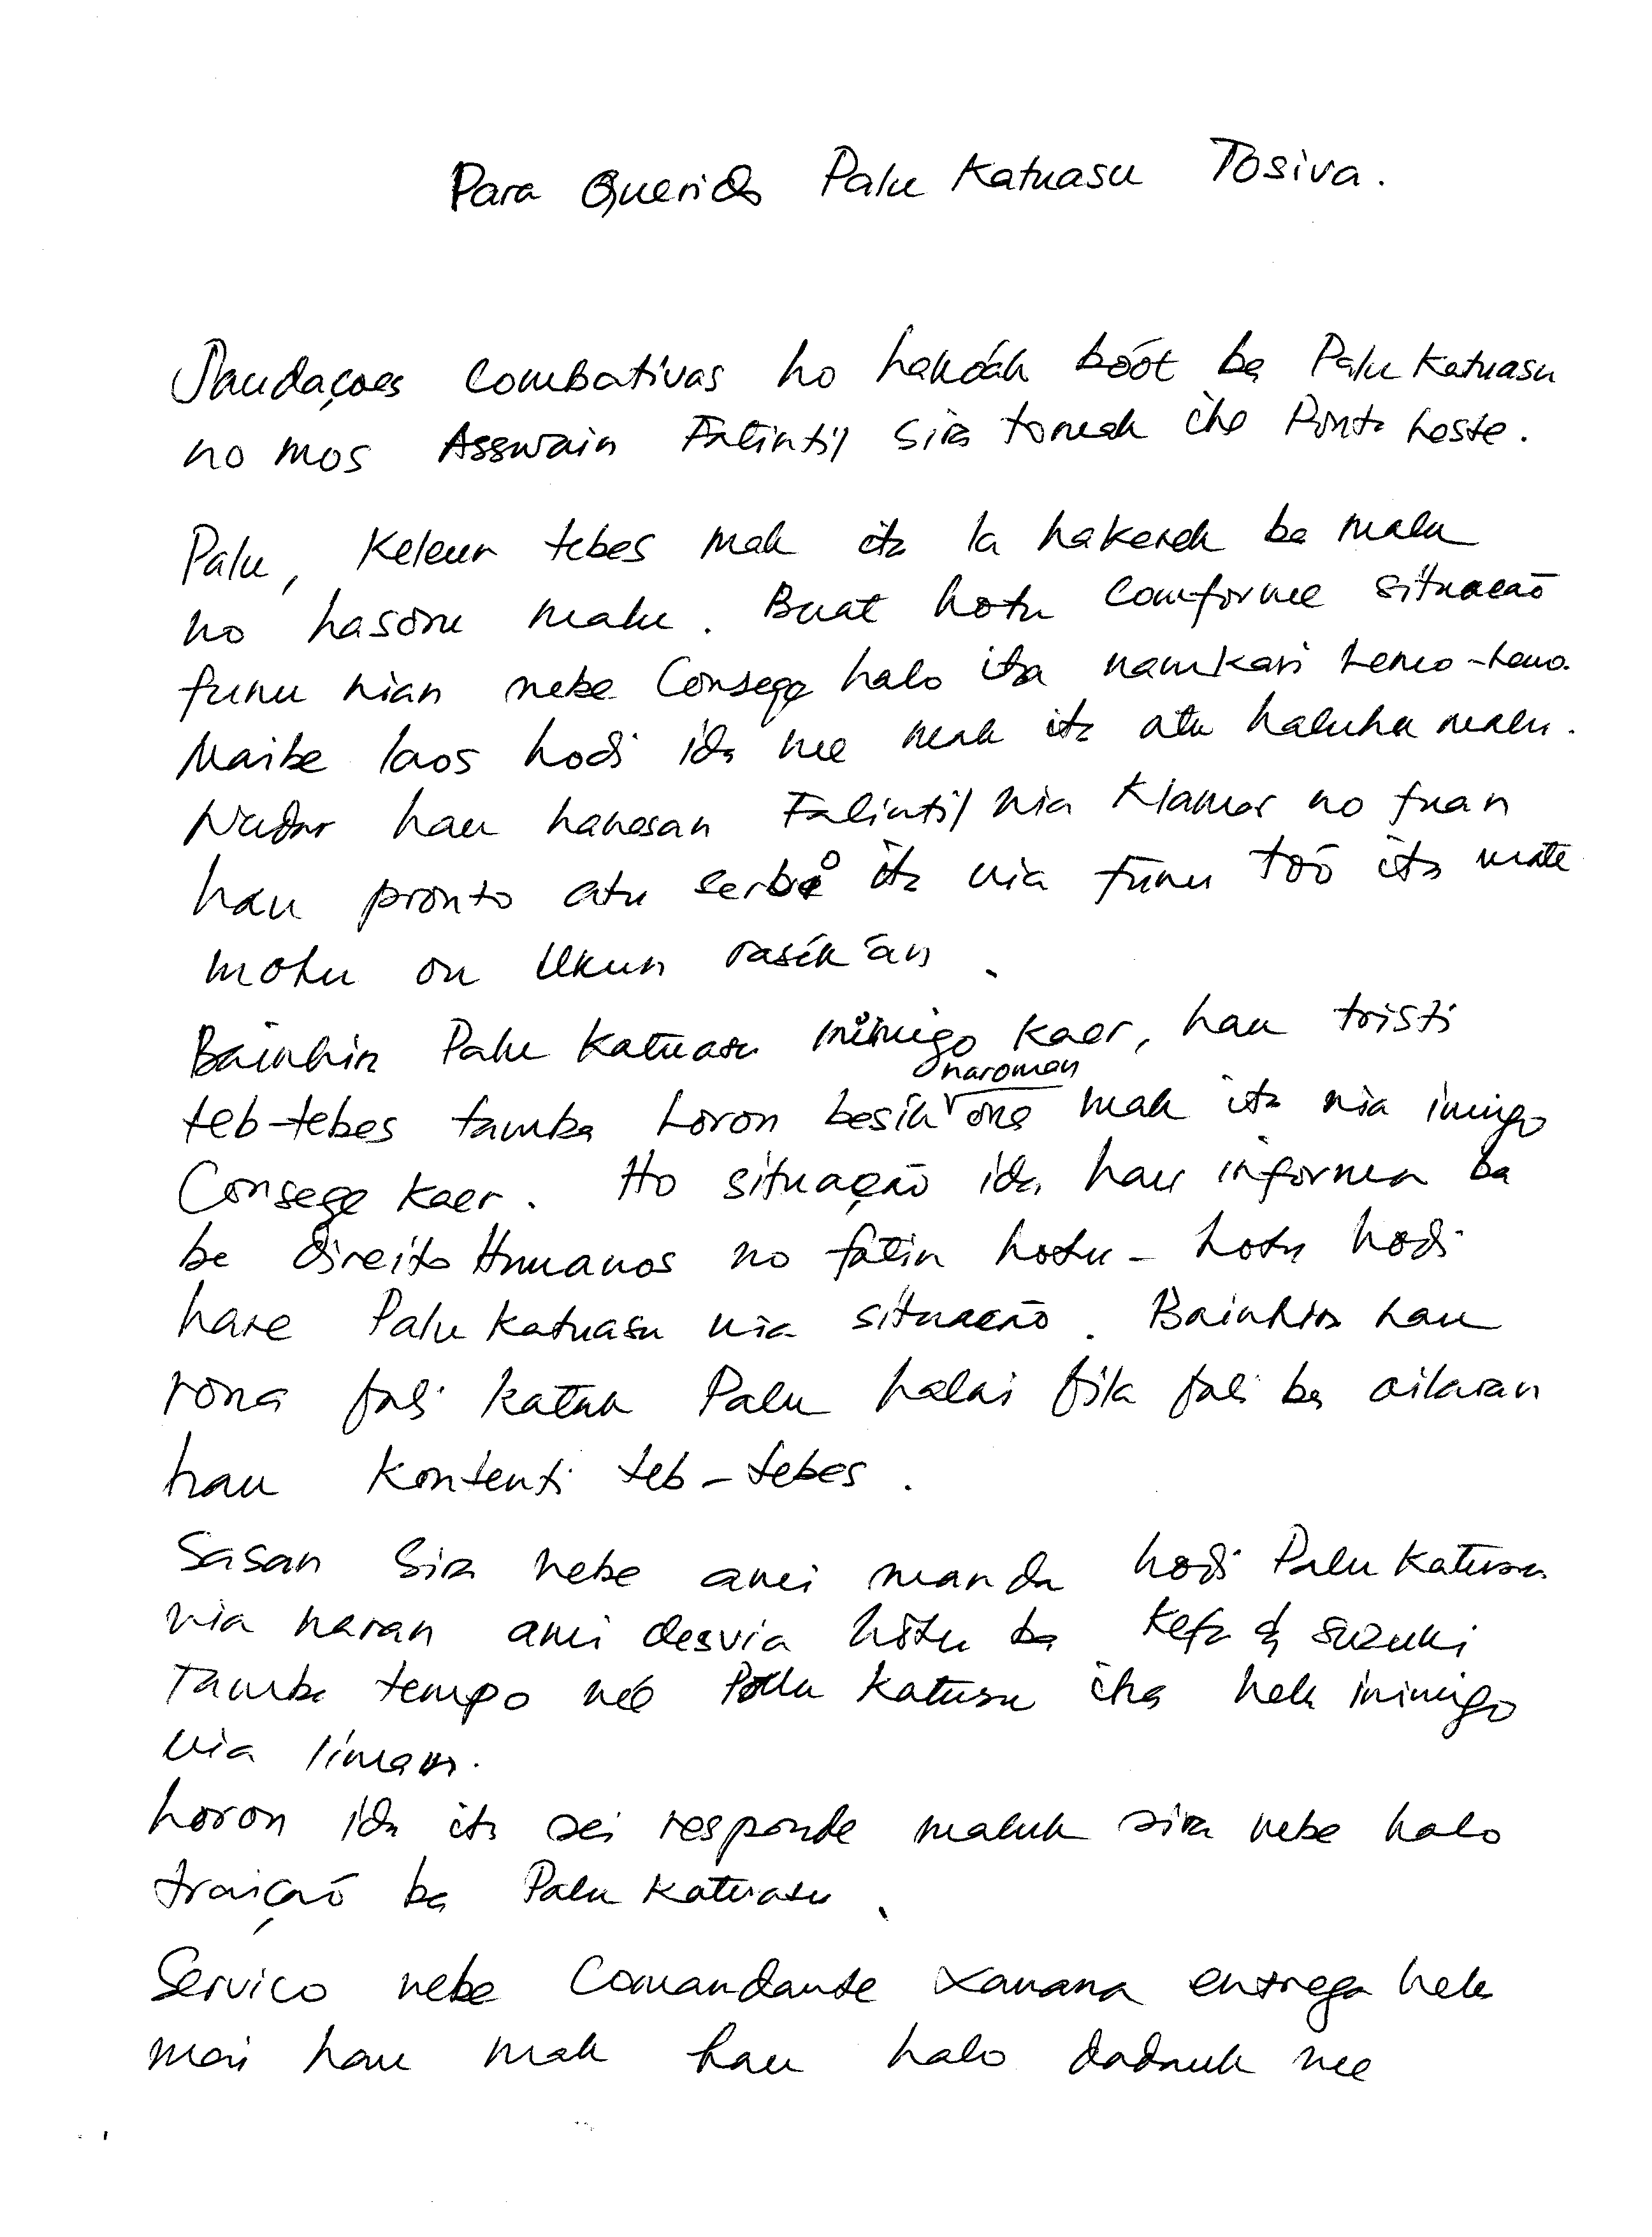 Para Querido Palu Katuasu Tosiva.
Saudaçoes Combativas ho hakóák bóót ba Palu Katuasu
no mos Asswain Falintil sira tomak iha Ponta Leste.
Palu, Keleur tebes mak ita la hakerek ba malu
no hasoru malu. Buat hotu Comforme situação
funu nian nebe Consege halo ita namkari lemo-lemo.
Maibe laos hodi ida nee mak ita atu haluha malu.
Nudar hau hanesan Falintil nia Klamar no fuan
hau pronto atu serbi ita nia funu toó ita mate
mohu ou Ukun rasik án.
Bainhira Palu Katuasu inimigo kaer, hau tristi
teb-tebes tamba Loron besik naroman ona mak ita nia inimigo
Consege kaer. Ho situação ida hau informa ba
ba direito Humanos no fatin hotu-hotu hodi
hare Palu Katuasu nia situação. Bainhira hau
rona fali katak Palu halai fila fali ba ailaran
hau Kontenti teb-tebes.
Sasan Sira nebe ami manda hodi Palu Katuasu
nia naran ami desvia hotu ba Kefa & Suzuki
Tamba tempo neé Palu Katuasu iha hela inimigo
nia liman.
Loron ida ita sei responde maluk sira nebe halo
traiçaõ ba Palu Katuasu.
Servico nebe Comandante Xanana entrega hela
mai hau mak hau halo dadauk nee